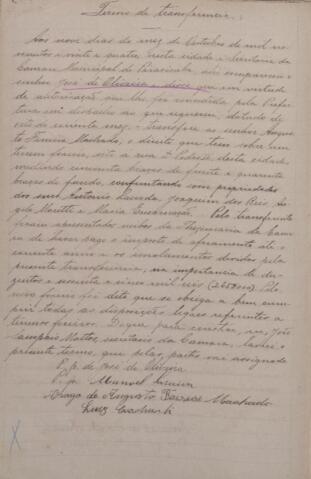 Termo de transferencia.
Aos nove dias do mez de Outubro de mil no-
vecentos e vinte e quatro, nesta cidade e Secretaria da
Camara Municipal de Piracicaba, ahi compareceu o
senhor José de Oliveira e disse que em virtude
de autorização que lhe foi concedida pela Prefei-
tura em despacho ao que requereu, datado de
do corrente mez, transfere ao senhor Augus-
to Ferreira Machado, o direito que tem sobre um
terreno foreiro, sito a rua desta cidade,
medindo cincoenta braças de frente e quarenta
braças de fundo, confrontando com propriedades
dos snrs. Antonio Joaquim dos Reis,
e Maria Encarnação. Pelo transferente
foram apresentados recibos da Thesouraria da Cama-
ra de haver pago o imposto de aforamento até o
corrente anno e os emolumentos devidos pela
presente transferencia, na importancia de du-
zentos e sessenta e cinco mil réis (265$000). Pelo
novo foreiro foi dito que se obriga a bem cum-
prir todas as disposições legaes referentes a
terrenos foreiros. Do que, para constar, eu, João
Sampaio Mattos, secretario da Camara, lavrei o
presente termo, que pelas partes vae assignado.
P. p. de José de Oliveira
P. p. Manoel
A rogo de Augusto Ferreira Machado
Luiz